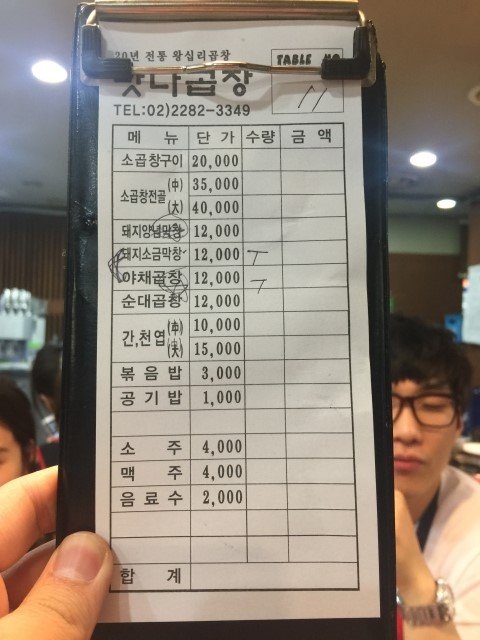 20년 전통 왕십리곱창
TABLE NO
맛나곱창
11
TEL:02)2282-3349
메 뉴 단 가 수량 금 액
소곱창구이 20,000
소곱창전골 (中) 35,000
(大) 40,000
돼지양념막창 12,000
돼지소금막창 12,000
야채곱창 12,000
순대곱창 12,000
간,천엽 (中) 10,000
(大) 15,000
볶음밥 3,000
공기밥 1,000
소 주 4,000
맥 주 4,000
음료수 2,000
합 계